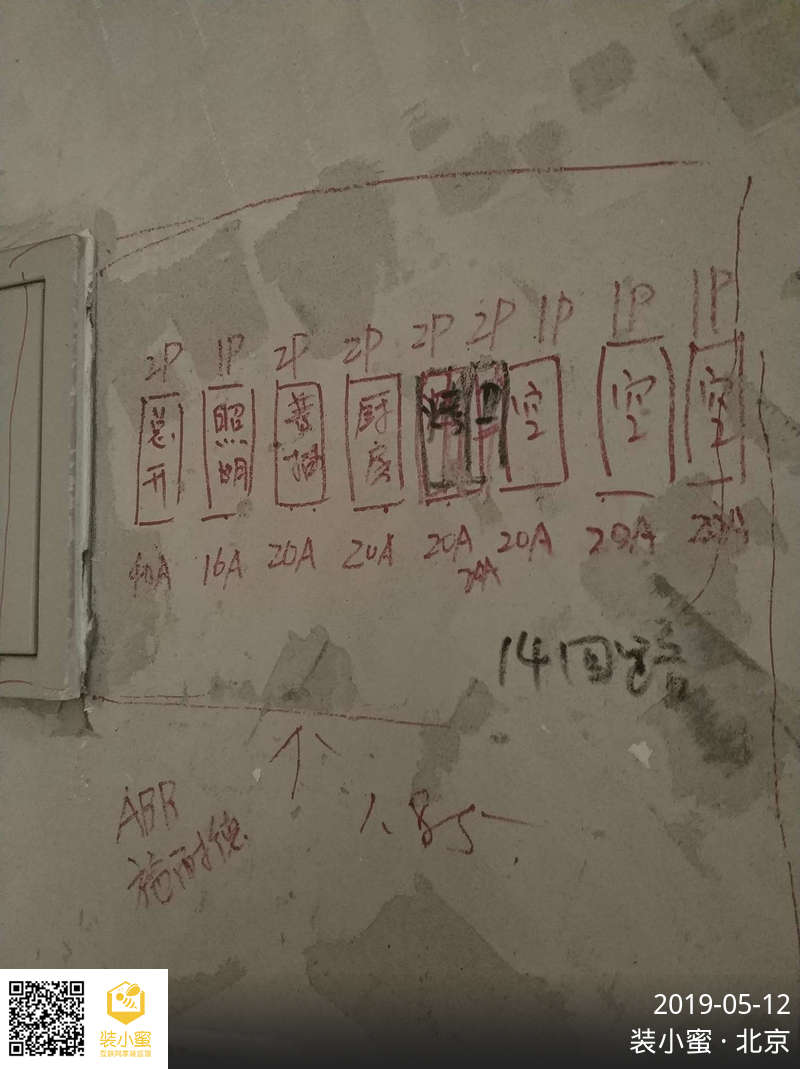 2P 1P 2P 2P 2P 2P 1P 1P 1P
总开 照明 普插 厨房 空 空 空
40A 16A 20A 20A 20A 20A 20A
20A
14回路
ABB
施耐德
1.85
2019-05-12
装小蜜 · 北京
装小蜜